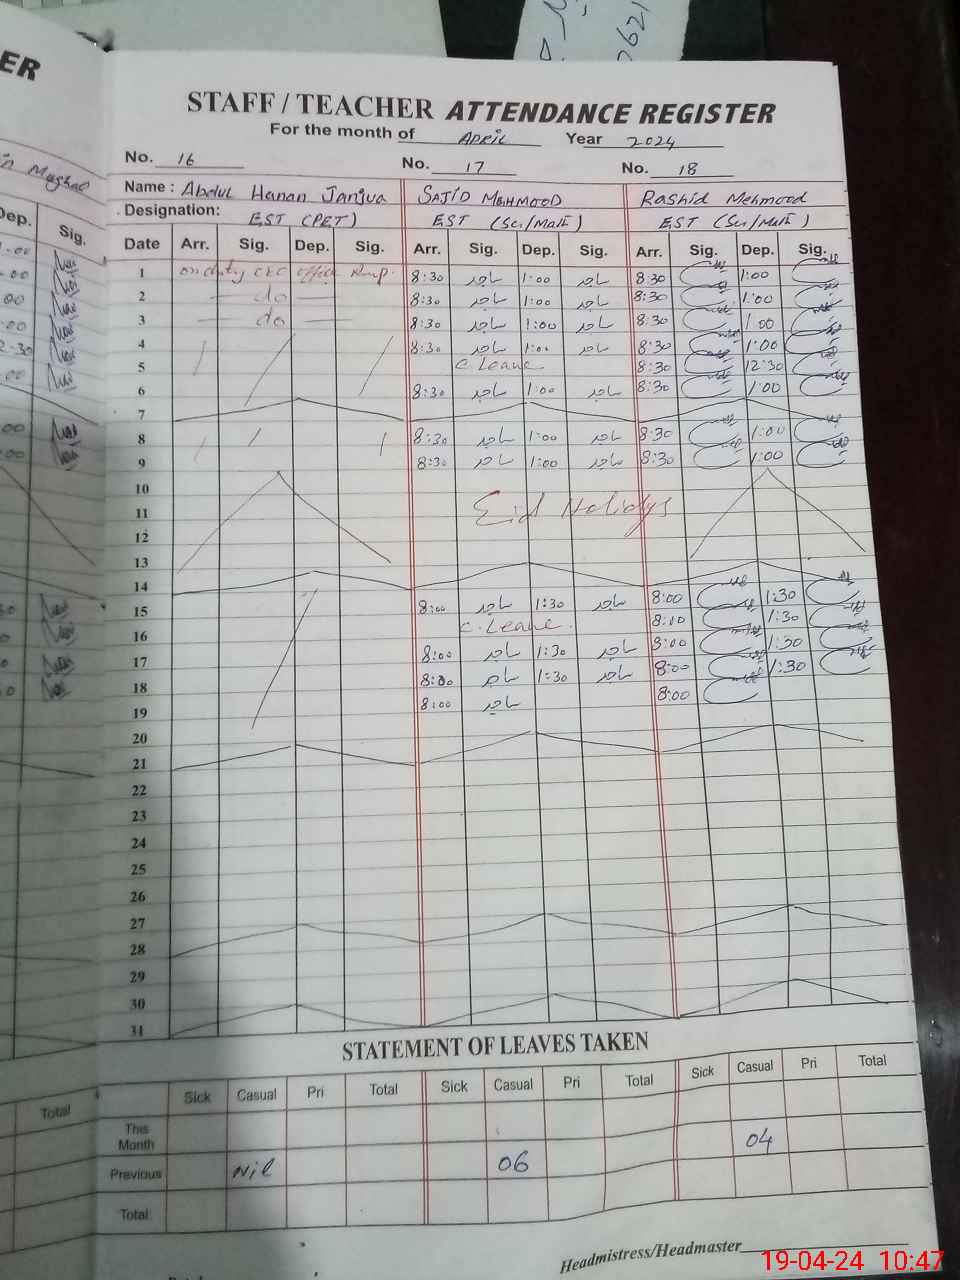 ER
0621
STAFF / TEACHER ATTENDANCE REGISTER
For the month of APRIL Year 2024
No. 16 No. 17 No. 18
in Mughal
Name : Abdul Hanan Janjua SAJID MEHMOOD Rashid Mehmood
Designation: EST (PET) EST (Sci/Math) EST (Sci/Math)
Dep. Sig.
Date Arr. Sig. Dep. Sig. Arr. Sig. Dep. Sig. Arr. Sig. Dep. Sig.
1 on duty CEO office Rwp. 8:30 ساجد 1:00 ساجد 8:30 1:00
2 — do — 8:30 ساجد 1:00 ساجد 8:30 1:00
3 — do — 8:30 ساجد 1:00 ساجد 8:30 1:00
4 8:30 ساجد 1:00 ساجد 8:30 1:00
5 C. Leave 8:30 12:30
6 8:30 ساجد 1:00 ساجد 8:30 1:00
7
8 8:30 ساجد 1:00 ساجد 8:30 1:00
9 8:30 ساجد 1:00 ساجد 8:30 1:00
10
11 Eid Holidys
12
13
14
15 8:00 ساجد 1:30 ساجد 8:00 1:30
16 C. Leave. 8:00 1:30
17 8:00 ساجد 1:30 ساجد 8:00 1:30
18 8:00 ساجد 1:30 ساجد 8:00 1:30
19 8:00 ساجد 8:00
20
21
22
23
24
25
26
27
28
29
30
31
STATEMENT OF LEAVES TAKEN
Total Sick Casual Pri Total Sick Casual Pri Total Sick Casual Pri Total
This Month 04
Previous Nil 06
Total
Headmistress/Headmaster
19-04-24 10:47